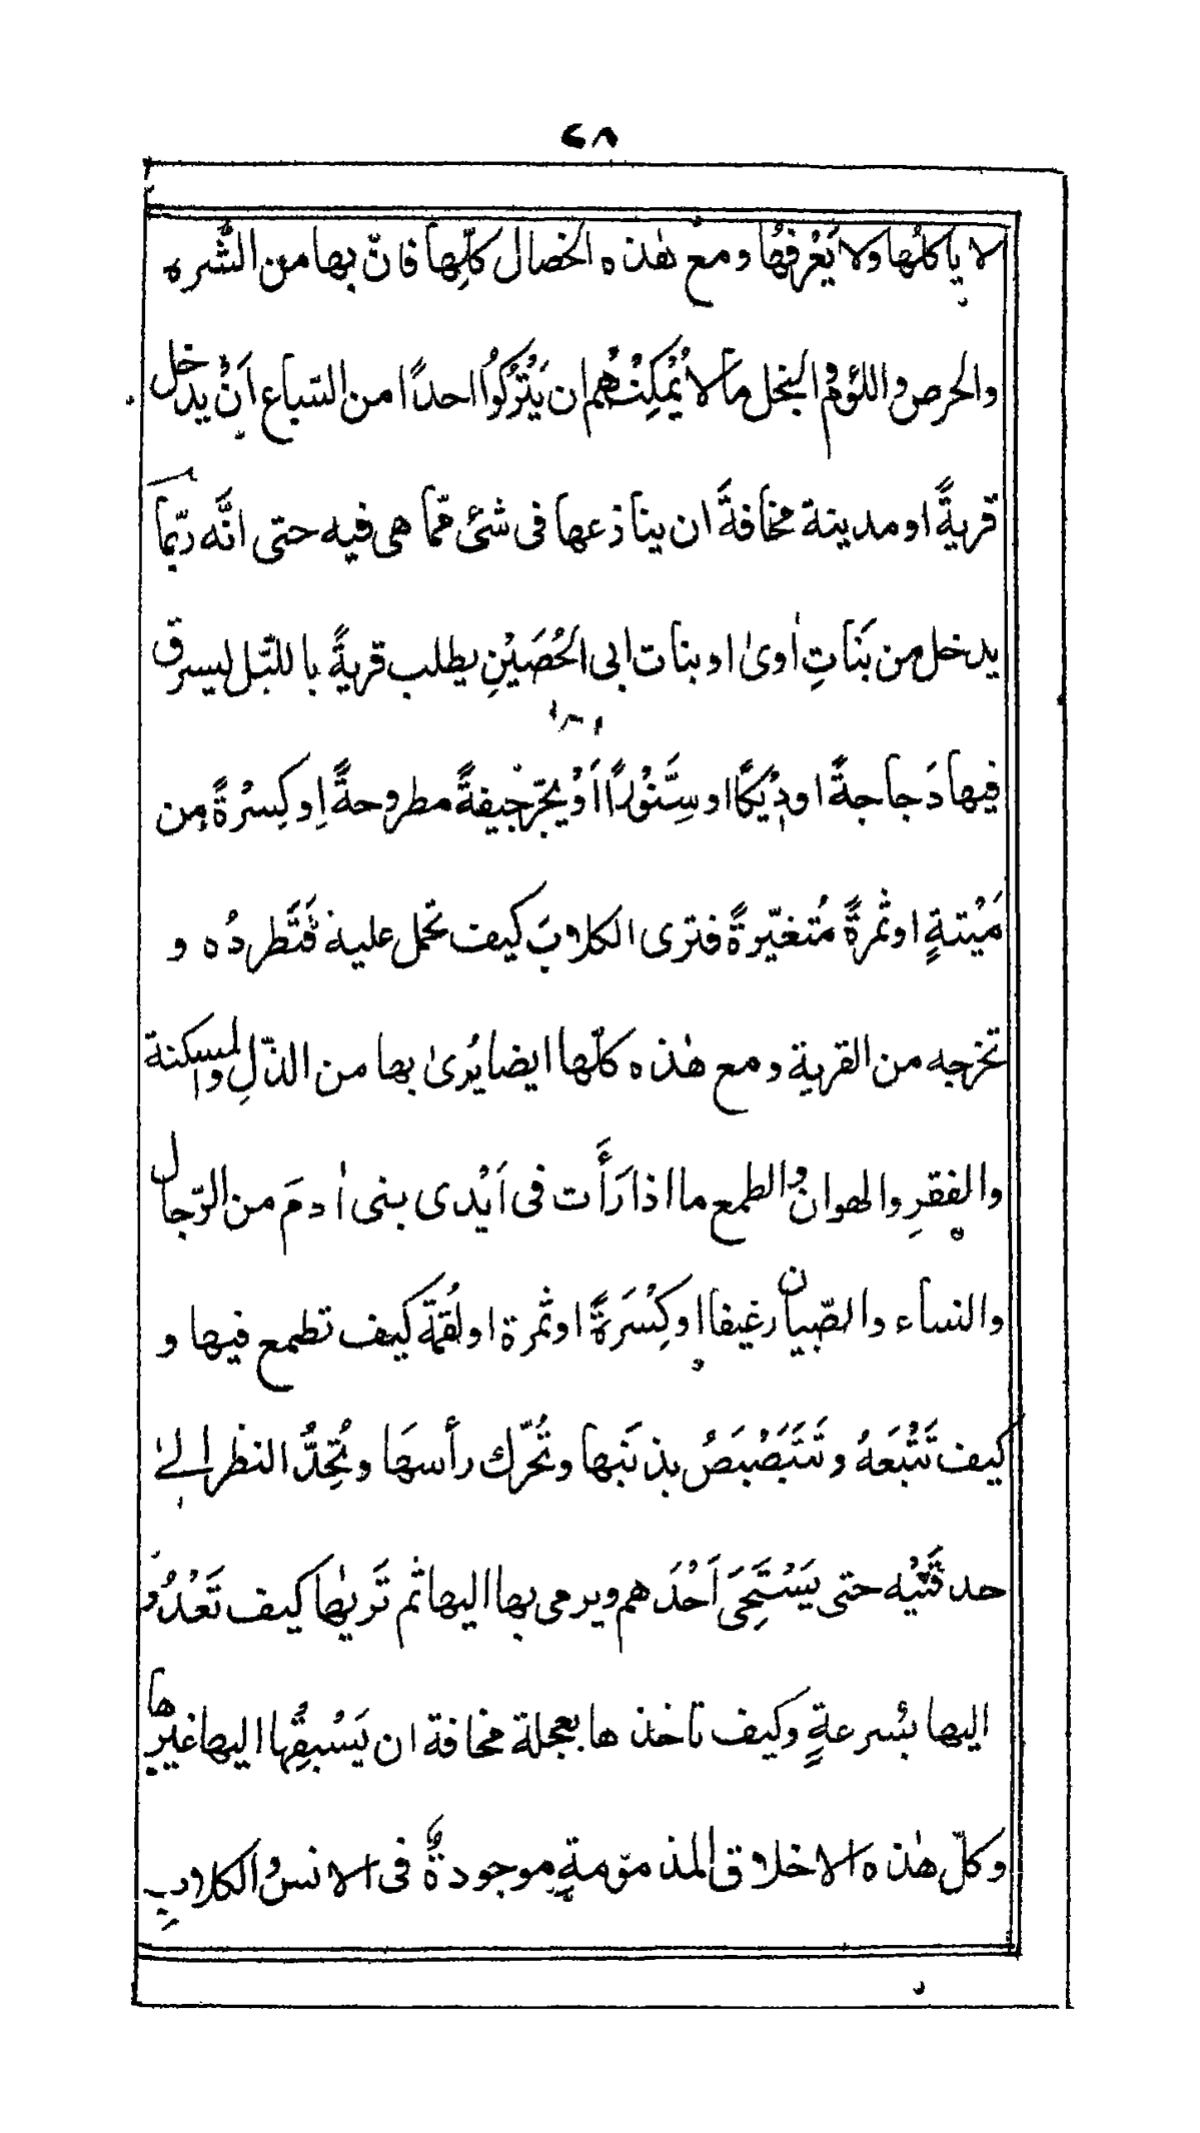 ٤٨
لا ياكلُها ولا يَعْرِفُها ومع هٰذه الخصال كلّها فانّ بها من الشّره
والحرص واللؤم والبخل ما لا يُمْكِنُهُم ان يَتْرُكُوا احدًا من السّباع اَنْ يدخل
قريةً او مدينة مخافةً ان ينازعها فى شئ ممّا هى فيه حتى انّه ربّما
يدخل من بَنَاتِ اٰوىٰ او بنات ابى الحُصَيْنِ يطلب قريةً باللّيل ليسرق
فيها دَجاجةً او دِيْكًا او سِنَّوْرًا اَوْ يجرّ جِيفةً مطروحةً اِو كِسْرةً مِن
مَيْتةٍ او ثمرةً مُتغيّرةً فترى الكلابَ كيف تحمل عليه فَتَطردُه و
تخرجه من القرية ومع هٰذه كلّها ايضا يُرىٰ بها من الذّلِ والمسكنة
والفقرِ والهوان والطمع ما اذا رَأَت فى اَيْدى بنى اٰدمَ من الرّجال
والنساء والصّبيان رغيفا او كِسْرَةً او ثمرة او لُقمَةً كيف تطمع فيها و
كيف تَتْبَعَهُ وتَتَبَصْبَصُ بذنَبها وتُحَرّك رأسهَا وتُحِدُّ النظر الىٰ
حدقَتَيْه حتى يَسْتَحِىَ اَحْدَهم ويرمى بها اليها ثم تَريٰها كيف تَعْدُو
اليها بسُرعةٍ وكيف تاخذها بعجلة مخافة ان يَسْبِقُها اليها غيرها
وكلّ هٰذه الاخلاق المذمومةِ موجودةٌ فى الانس والكلابِ